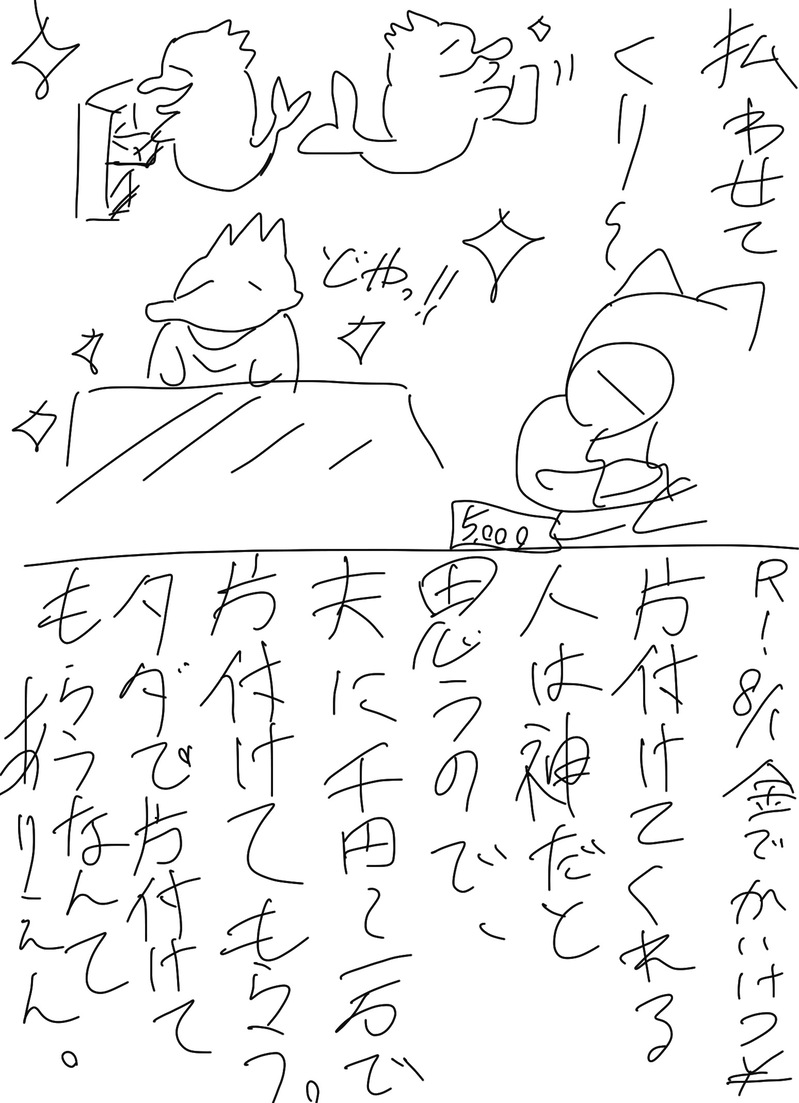 払わせて
くり~
どやっ!!
5,000
R!.8/1 金でかいけつ¥
片付けてくれる
人は神だと
思うので、
夫に千円~一万で
片付けてもらう。
タダで片付けて
もらうなんて
ありえん。